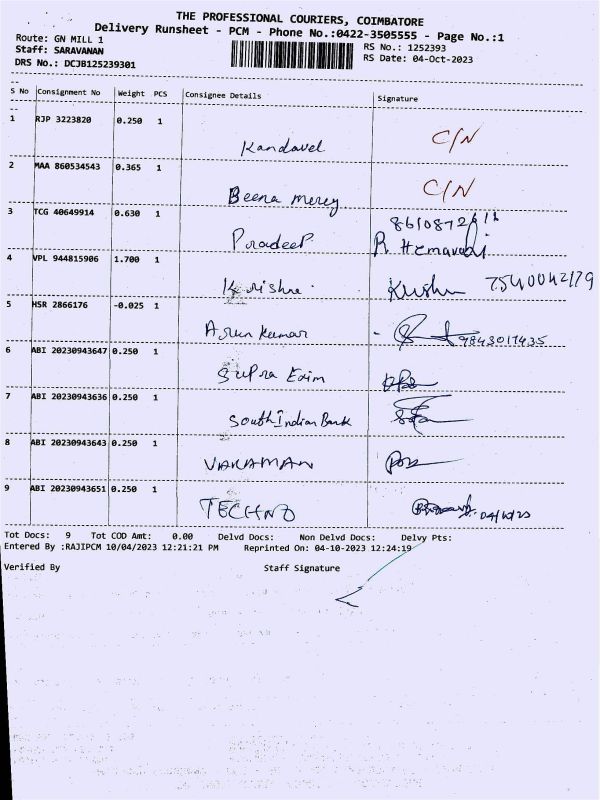 THE PROFESSIONAL COURIERS, COIMBATORE
Delivery Runsheet - PCM - Phone No.:0422-3505555 - Page No.:1
Route: GN MILL 1
Staff: SARAVANAN
DRS No.: DCJB125239301
RS No.: 1252393
RS Date: 04-Oct-2023
S No Consignment No Weight PCS Consignee Details Signature
1 RJP 3223820 0.250 1 Kandavel C/N
2 MAA 860534543 0.365 1 Beena mercy C/N
3 TCG 40649914 0.630 1 Pradeep R. Hemavathi
4 VPL 944815906 1.700 1 Krishna. 7540042179
5 HSR 2866176 -0.025 1 Arun kumar 9843017435
6 ABI 20230943647 0.250 1 Supra Exim
7 ABI 20230943636 0.250 1 South Indian Bank
8 ABI 20230943643 0.250 1
9 ABI 20230943651 0.250 1 TECHNO 04/10/23
Tot Docs: 9 Tot COD Amt: 0.00 Delvd Docs: Non Delvd Docs: Delvy Pts:
Entered By :RAJIPCM 10/04/2023 12:21:21 PM Reprinted On: 04-10-2023 12:24:19
Verified By Staff Signature